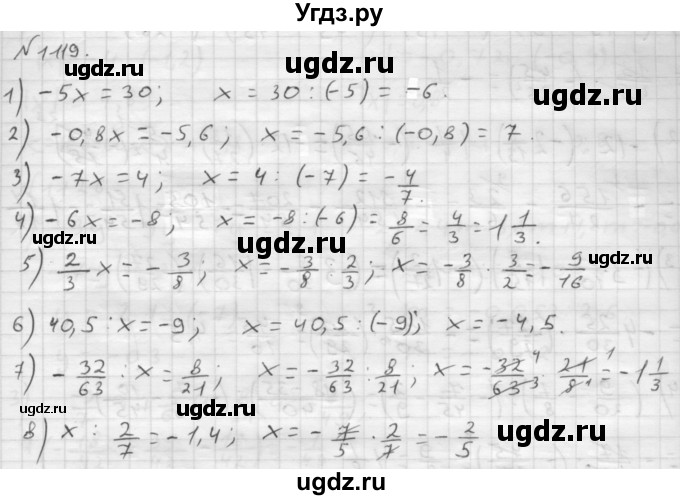 Угдз.ру
N 1119.
1) -5x = 30; x = 30 : (-5) = -6.
2) -0,8x = -5,6; x = -5,6 : (-0,8) = 7.
3) -7x = 4; x = 4 : (-7) = -4/7.
4) -6x = -8; x = -8 : (-6) = 8/6 = 4/3 = 1 1/3.
5) 2/3 x = -3/8; x = -3/8 : 2/3; x = -3/8 · 3/2 = -9/16
6) 40,5 : x = -9; x = 40,5 : (-9); x = -4,5.
7) -32/63 : x = 8/21; x = -32/63 : 8/21; x = -32 4/63 3 · 21 1/8 1 = -1 1/3
8) x : 2/7 = -1,4; x = -7/5 · 2/7 = -2/5
ugdz.ru
ugdz.ru
ugdz.ru
ugdz.ru
ugdz.ru
ugdz.ru
ugdz.ru
ugdz.ru
ugdz.ru
ugdz.ru
ugdz.ru
ugdz.ru
ugdz.ru